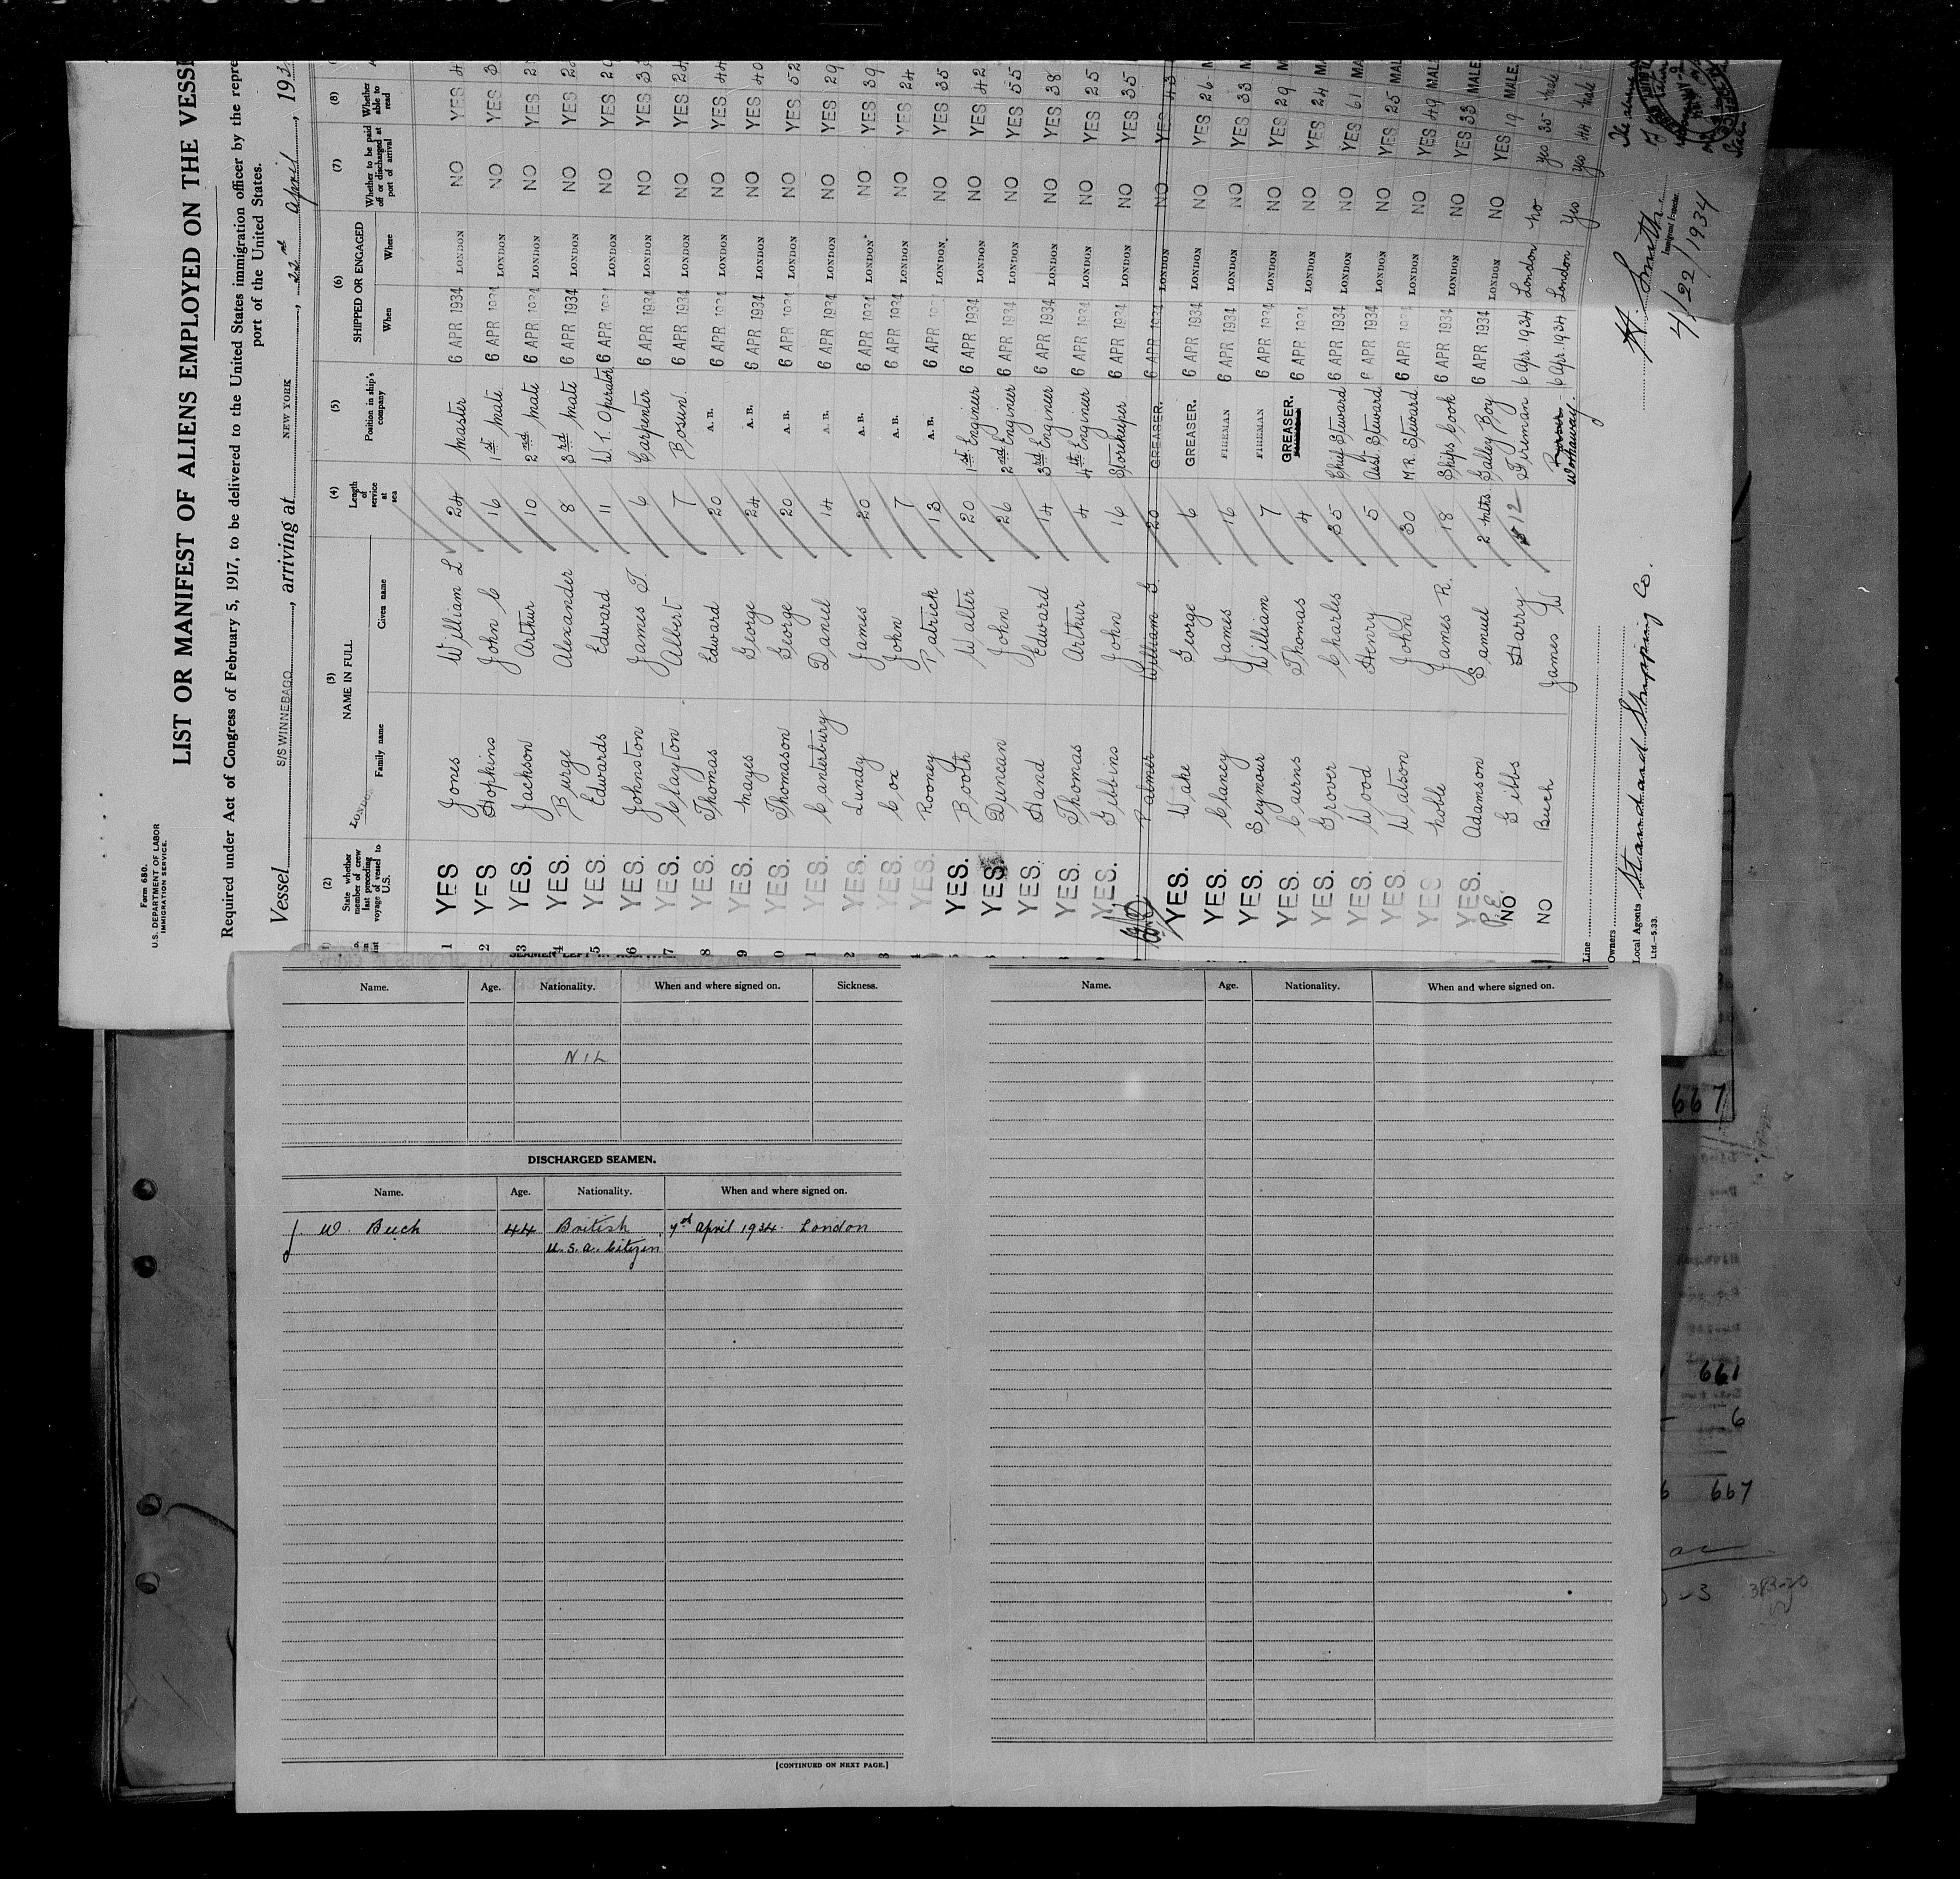 Form 680.
U.S. DEPARTMENT OF LABOR
IMMIGRATION SERVICE.
LIST OR MANIFEST OF ALIENS EMPLOYED ON THE VESSE
Required under Act of Congress of February 5, 1917, to be delivered to the United States immigration officer by the repre
port of the United States.
Vessel S/S WINNEBAGO, arriving at NEW YORK, 22nd April, 193
(2) (3) (4) (5) (6) (7) (8)
State whether member of crew last preceding voyage of vessel to U.S. NAME IN FULL Family name Given name Length of service at sea Position in ship's company SHIPPED OR ENGAGED When Where Whether to be paid off or discharged at port of arrival Whether able to read
1 YES Jones William L 24 Master 6 APR 1934 LONDON NO YES 4
2 YES Hopkins John C 16 1st Mate 6 APR 1934 LONDON NO YES 3
3 YES. Jackson Arthur 10 2nd Mate 6 APR 1934 LONDON NO YES 2
4 YES. Burge Alexander 8 3rd Mate 6 APR 1934 LONDON NO YES 2
5 YES. Edwards Edward 11 W.T. Operator 6 APR 1934 LONDON NO YES 20
6 YES. Johnston James T. 6 Carpenter 6 APR 1934 LONDON NO YES 3
7 YES. Clayton Albert 7 Bosun 6 APR 1934 LONDON NO YES 24
8 YES. Thomas Edward 20 A. B. 6 APR 1934 LONDON NO YES 44
9 YES. Mayes George 24 A. B. 6 APR 1934 LONDON NO YES 40
0 YES. Thomason George 20 A. B. 6 APR 1934 LONDON NO YES 52
1 YES. Canterbury Daniel 14 A. B. 6 APR 1934 LONDON NO YES 29
2 YES. Lundy James 20 A. B. 6 APR 1934 LONDON NO YES 39
3 YES. Cox John 7 A. B. 6 APR 1934 LONDON NO YES 24
YES. Rooney Patrick 13 A. B. 6 APR 1934 LONDON NO YES 35
YES. Booth Walter 20 1st Engineer 6 APR 1934 LONDON NO YES 42
YES. Duncan John 26 2nd Engineer 6 APR 1934 LONDON NO YES 55
YES. Hand Edward 14 3rd Engineer 6 APR 1934 LONDON NO YES 38
YES. Thomas Arthur 4 4th Engineer 6 APR 1934 LONDON NO YES 25
YES. Gibbins John 16 Storekeeper 6 APR 1934 LONDON NO YES 35
Palmer William G. 20 GREASER. 6 APR 1934 LONDON NO YES 43
YES. Wake George 6 GREASER. 6 APR 1934 LONDON NO YES 26 M
YES. Clancy James 16 FIREMAN 6 APR 1934 LONDON NO YES 33 M
YES. Seymour William 7 FIREMAN 6 APR 1934 LONDON NO YES 29 M
YES. Cairns Thomas 4 GREASER. 6 APR 1934 LONDON NO YES 24 MA
YES. Grover Charles 35 Chief Steward 6 APR 1934 LONDON NO YES 61 MA
YES. Wood Henry 5 Asst. Steward 6 APR 1934 LONDON NO YES 25 MAL
YES. Watson John 30 M.R. Steward 6 APR 1934 LONDON NO YES 49 MAL
YES Noble James R. 18 Ships Cook 6 APR 1934 LONDON NO YES 33 MALE
YES. Adamson Samuel 2 mths. Galley Boy 6 APR 1934 LONDON NO YES 19 MALE.
P.E. NO Gibbs Harry 12 Fireman 6 Apr. 1934 London No Yes 35 Male
NO Buch James W Workaway. 6 Apr. 1934 London Yes Yes 44 Male
Line
Owners
Local Agents Standard Shipping Co.
Ltd.—5.33.
H. Smith
Immigrant Inspector.
4/22/1934
Name. Age. Nationality. When and where signed on. Sickness.
NIL
DISCHARGED SEAMEN.
Name. Age. Nationality. When and where signed on.
J. W. Buch 44 British 7th April 1934. London
U.S.A. Citizen
[CONTINUED ON NEXT PAGE.]
Name. Age. Nationality. When and where signed on.
667
661
6
667